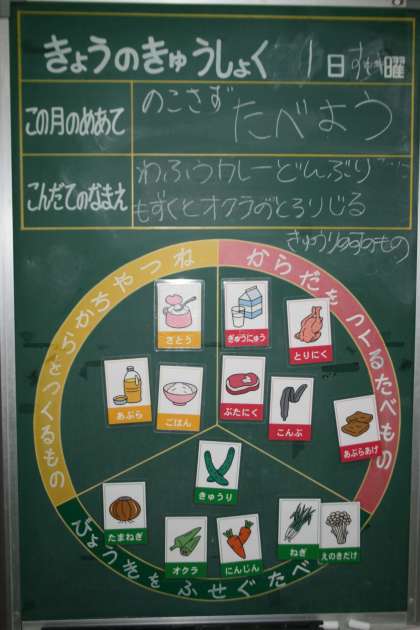 きょうのきゅうしょく 1日 曜
この月のめあて
のこさず
たべよう
こんだてのなまえ
わふうカレーどんぶり
もずくとオクラのとろりじる
きゅうりのすのもの
ねつやちからをつくるもの
からだをつくるたべもの
さとう
ぎゅうにゅう
とりにく
あぶら
ごはん
ぶたにく
こんぶ
あぶらあげ
きゅうり
たまねぎ
オクラ
にんじん
ねぎ
えのきだけ
びょうきをふせぐたべ